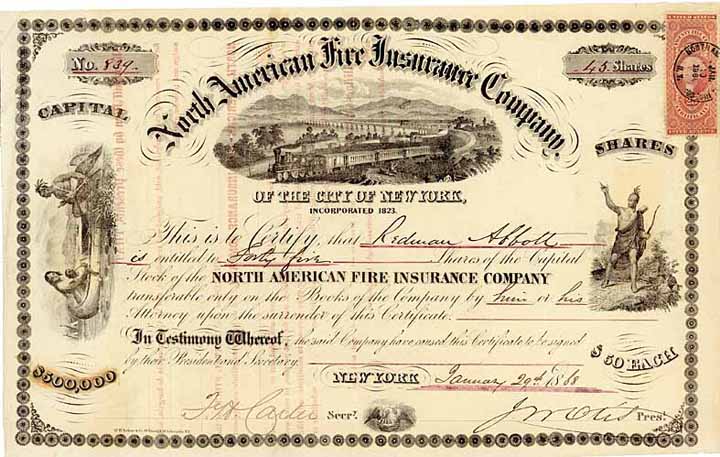 No. 839.
45 Shares
North American Fire Insurance Company,
CAPITAL
SHARES
OF THE CITY OF NEW YORK,
INCORPORATED 1823.
This is to Certify, that Redman Abbott
is entitled to Forty five Shares of the Capital
Stock of the NORTH AMERICAN FIRE INSURANCE COMPANY
transferable only on the Books of the Company by him or his
Attorney upon the surrender of this Certificate.
In Testimony Whereof, the said Company have caused this Certificate to be signed
by their President and Secretary.
$500,000
$50 EACH
NEW YORK January 29th 1868
F. H. Carter Secy. J W Otis Pres.